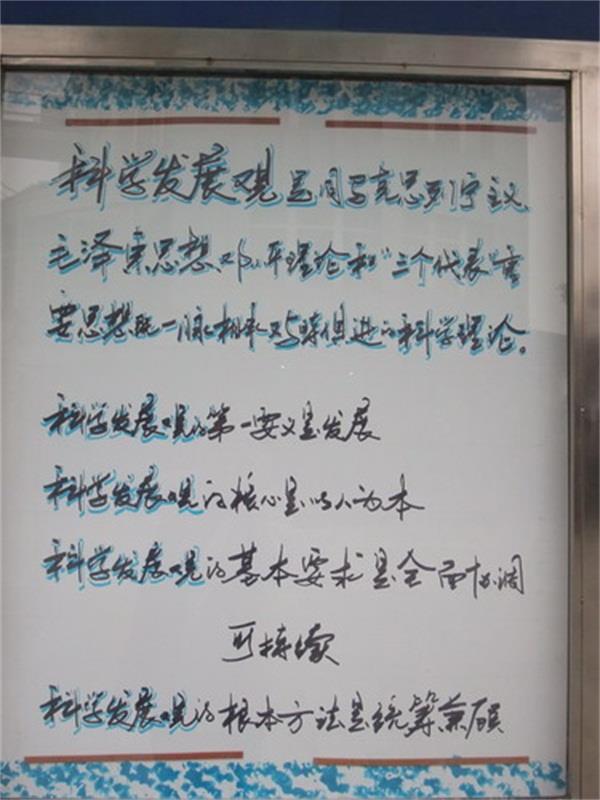 科学发展观是同马克思列宁主义
毛泽东思想、邓小平理论和“三个代表”重
要思想既一脉相承又与时俱进的科学理论。
科学发展观的第一要义是发展
科学发展观的核心是以人为本
科学发展观的基本要求是全面协调
可持续
科学发展观的根本方法是统筹兼顾